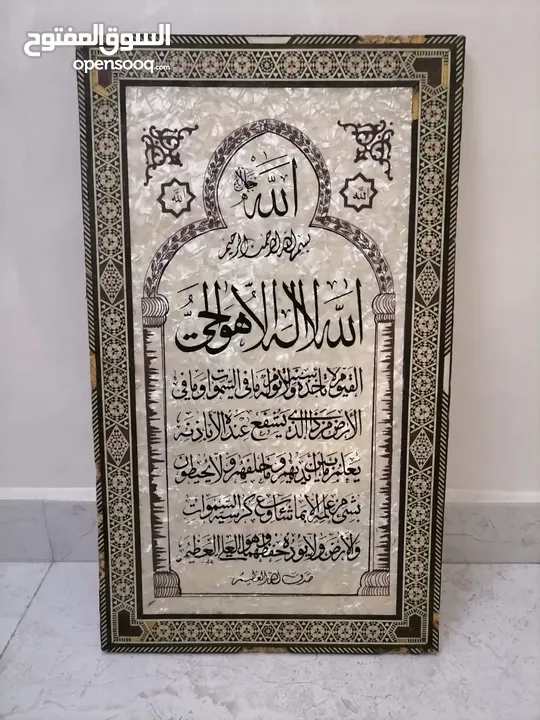 السوق المفتوح
opensooq.com
الله جل جلاله
الله
الله
بسم الله الرحمن الرحيم
الله لا اله الا هو الحي
القيوم لا تأخذه سنة ولا نوم له ما في السموات وما في
الارض من ذا الذي يشفع عنده الا باذنه
يعلم ما بين ايديهم وما خلفهم ولا يحيطون
بشيء من علمه الا بما شاء وسع كرسيه السموات
والارض ولا يؤده حفظهما وهو العلي العظيم
صدق الله العظيم